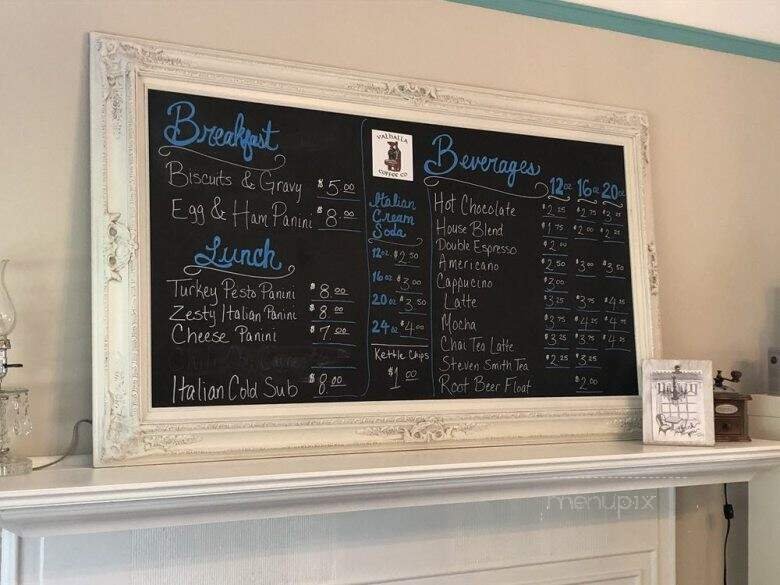 Breakfast
Biscuits & Gravy $5.00
Egg & Ham Panini $8.00
Lunch
Turkey Pesto Panini $8.00
Zesty Italian Panini $8.00
Cheese Panini $7.00
Italian Cold Sub $8.00
VALHALLA
COFFEE CO
Italian
Cream
Soda
12oz $2.50
16oz $3.00
20oz $3.50
24oz $4.00
Kettle Chips
$1.00
Beverages 12oz 16oz 20oz
Hot Chocolate $2.25 $2.75 $3.25
House Blend $1.75 $2.00 $2.25
Double Espresso $2.00
Americano $2.50 $3.00 $3.50
Cappucino $3.00
Latte $3.25 $3.75 $4.25
Mocha $3.75 $4.25 $4.75
Chai Tea Latte $3.25 $3.75 $4.25
Steven Smith Tea $2.25 $3.25
Root Beer Float $2.00
menupix